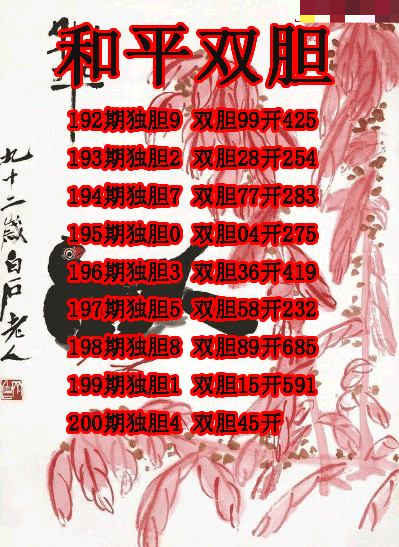 和平双胆
192期独胆9 双胆99开425
193期独胆2 双胆28开254
194期独胆7 双胆77开283
195期独胆0 双胆04开275
196期独胆3 双胆36开419
197期独胆5 双胆58开232
198期独胆8 双胆89开685
199期独胆1 双胆15开591
200期独胆4 双胆45开
九十二岁白石老人